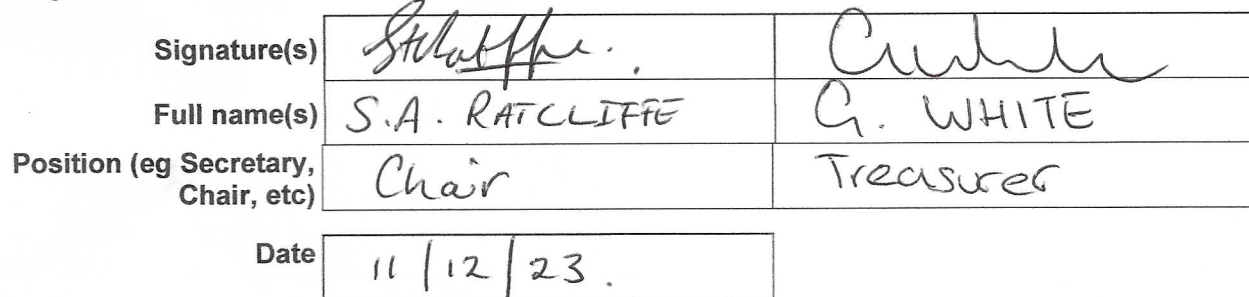 Signature(s)
Full name(s) S.A. RATCLIFFE G. WHITE
Position (eg Secretary, Chair Treasurer
Chair, etc)
Date 11/12/23.